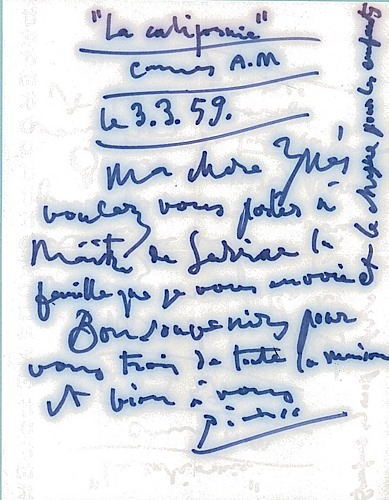 "La californie"
Cannes A.M
le 3.3.59.
Ma chère Ynès
voulez vous porter à
Maître de la
feuille que je vous envoie
et le chèque pour les enfants
Bon souvenirs pour
vous trois de toute la maison
et bien à vous
Picasso